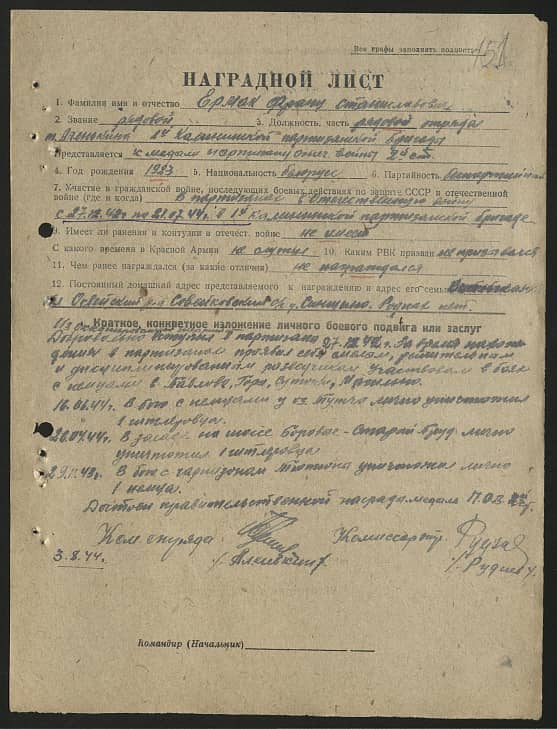 Все графы заполнять полностью
151
НАГРАДНОЙ ЛИСТ
1. Фамилия имя и отчество Ермак Франц Станиславович
2. Звание рядовой 3. Должность, часть рядовой отряда
1й Калининской партизанской бригады
Представляется к медали партизану отеч. войны 2й ст.
4. Год рождения 1923 5. Национальность белорус 6. Партийность беспартийный
7. Участие в гражданской войне, последующих боевых действиях по защите СССР и отечественной
войне (где и когда) В партизанах в Отечественную войну
с 27.12.42г по 21.07.44г. в 1й Калининской партизанской бригаде
9. Имеет ли ранения и контузии в отечест. войне не имеет
С какого времени в Красной Армии не служил 10. Каким РВК призван не призывался
11. Чем ранее награждался (за какие отличия) не награждался
12. Постоянный домашний адрес представляемого к награждению и адрес его семьи
Освейский р-н с/с Родных нет.
Краткое, конкретное изложение личного боевого подвига или заслуг
Добровольно вступил в партизаны 27.12.42г. За время нахож-
дения в партизанах проявил себя смелым, решительным
и дисциплинированным разведчиком участвовал в боях
с немцами в Павлово, Гора,
16.06.44г. В бою с немцами у лично уничтожил
1 гитлеровца.
20.04.44г. В засаде на шоссе Боровое - Старый лично
уничтожил 1 гитлеровца
В бою с гарнизоном уничтожил лично
1 немца.
Достоин правительственной награды медали П.О.В. 2й ст.
Ком отряда Комиссар отр.
3.8.44г.
Командир (Начальник)